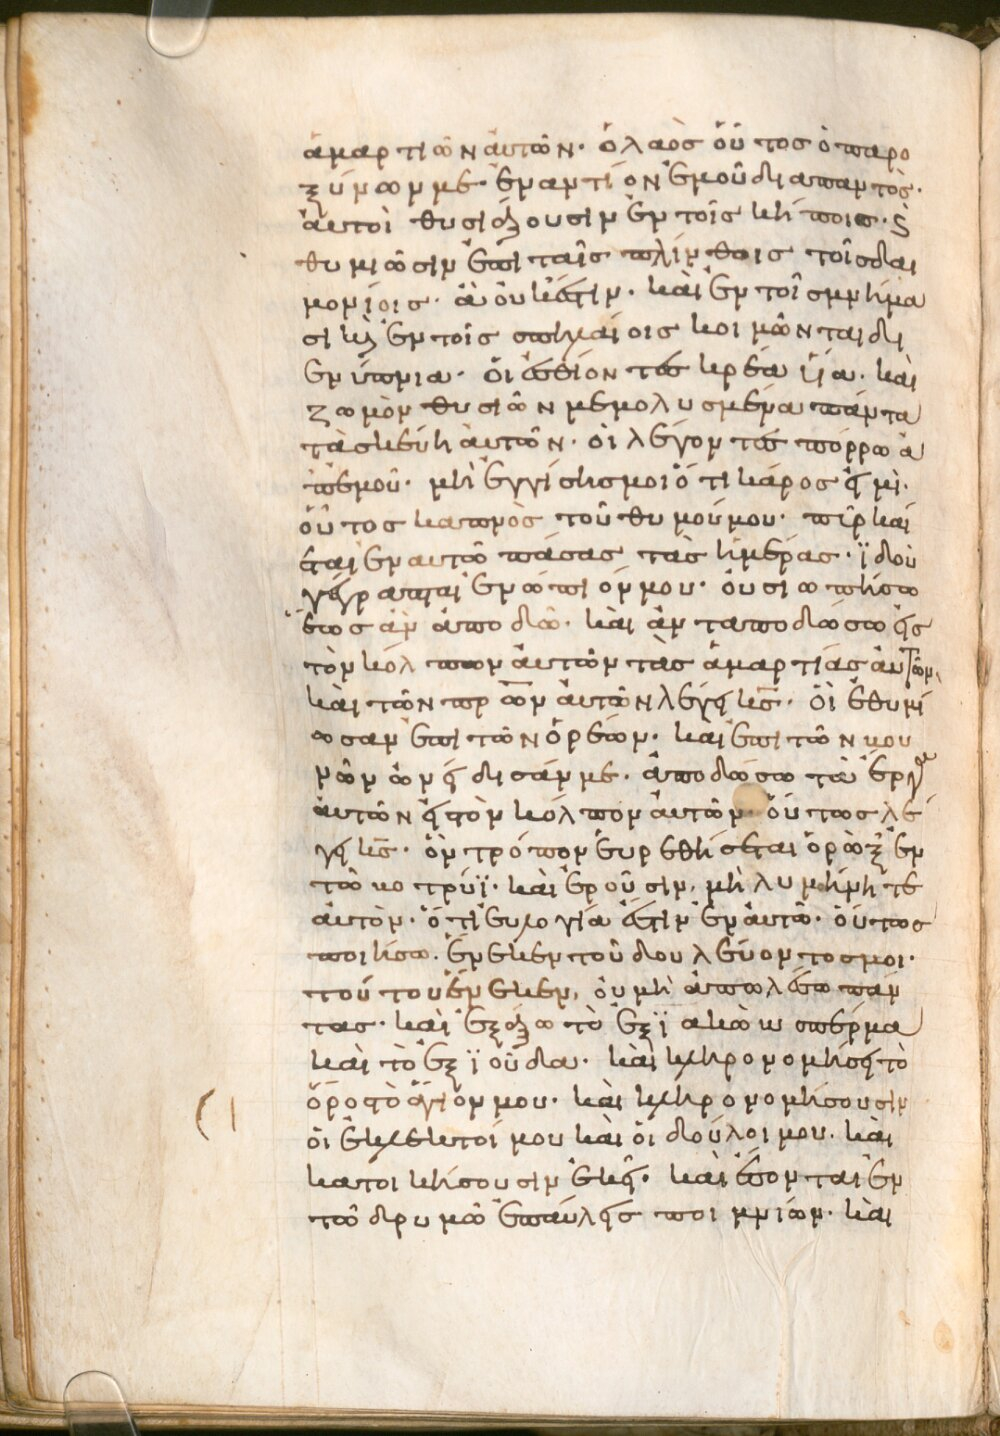 ἁμαρτιῶν αὐτῶν· ὁ λαὸς οὗτος ὁ παρο
ξύνων με· ἐναντίον ἐμοῦ διαπαντὸς·
αὐτοὶ θυσιάζουσιν ἐν τοῖς κήποις· ϗ
θυμιῶσιν ἐπὶ ταῖς πλίνθοις τοῖς δαι
μονίοις· ἃ οὐκ ἔστιν· καὶ ἐν τοῖς μνήμα
σι καὶ ἐν τοῖς σπηλαίοις κοιμῶνται δι
ἐνύπνια· οἱ ἐσθίοντες κρέα ὕϊα· καὶ
ζωμὸν θυσιῶν μεμολυσμένα πάντα
τὰ σκεύη αὐτῶν· οἱ λέγοντες πόρρω ἀ
π' ἐμοῦ· μὴ ἐγγίσῃς μοι ὅτι καθαρὸς εἰμὶ·
οὗτος καπνὸς τοῦ θυμοῦ μου· πῦρ καί
εται ἐν αὐτῶ πάσας τὰς ἡμέρας· ἰδοὺ
γέγραπται ἐνώπιόν μου· οὐ σιωπήσω
ἕως ἂν ἀποδῶ· καὶ ἀνταποδώσω εἰς
τὸν κόλπον αὐτῶν τὰς ἁμαρτίας αὐτῶν·
καὶ τῶν πρων αὐτῶν λέγει κς· οἳ ἐθυμί
ωσαν ἐπὶ τῶν ὀρέων· καὶ ἐπὶ τῶν βου
νῶν ὠνείδισάν με· ἀποδώσω τὰ ἔργα
αὐτῶν εἰς τὸν κόλπον αὐτῶν· οὕτως λέ
γει κς· ὃν τρόπον εὑρεθήσεται ὁ ρὼξ ἐν
τῶ βότρυϊ· καὶ ἐροῦσιν, μὴ λυμήνητε
αὐτὸν· ὅτι εὐλογία ἐστὶν ἐν αὐτῶ· οὕτως
ποιήσω· ἕνεκεν τοῦ δουλεύοντος μοι·
τούτου ἕνεκεν, οὐ μὴ ἀπωλέσω πάν
τας· καὶ ἐξάξω τὸ ἐξ ϊακὼβ σπέρμα
καὶ τὸ ἐξ ϊούδα· καὶ κληρονομήσει τὸ
ὄρος τὸ ἅγιόν μου· καὶ κληρονομήσουσιν
οἱ ἐκλεκτοί μου καὶ οἱ δοῦλοι μου· καὶ
κατοικήσουσιν ἐκεῖ· καὶ ἔσονται ἐν
τῶ δρυμῶ ἐπαύλεις ποιμνίων· καὶ